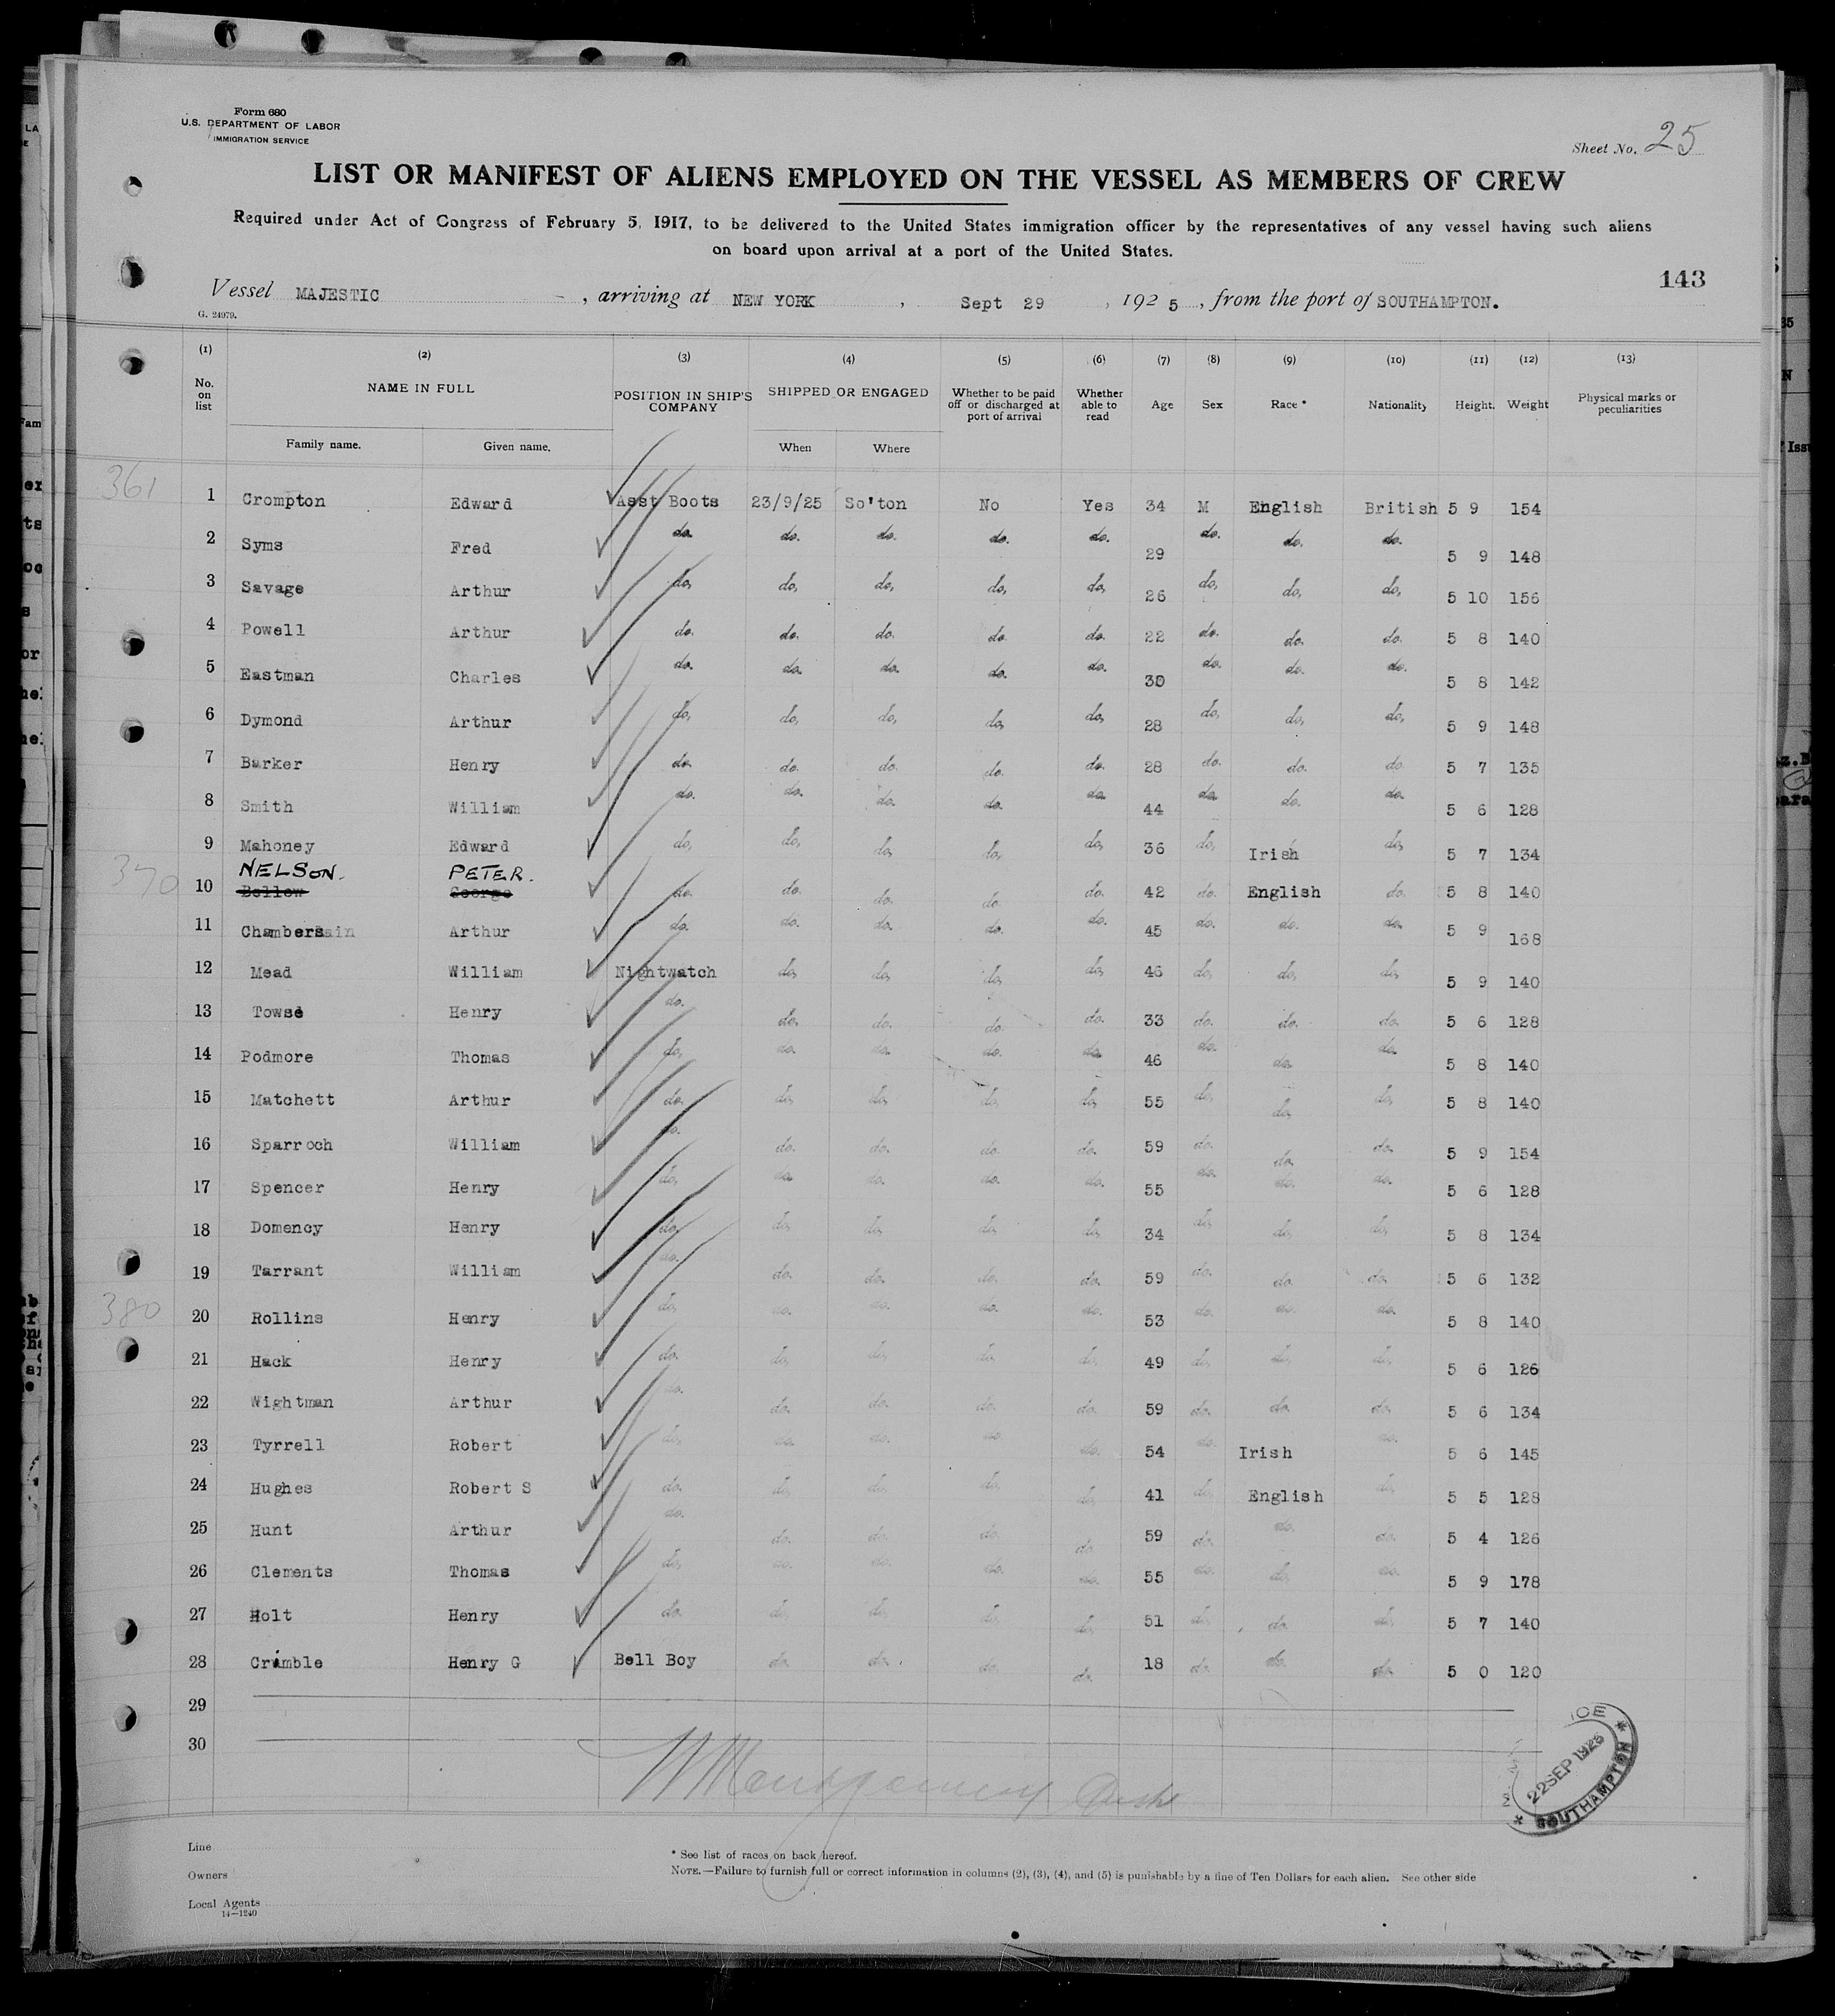 Form 680
U.S. DEPARTMENT OF LABOR
IMMIGRATION SERVICE
Sheet No. 25
LIST OR MANIFEST OF ALIENS EMPLOYED ON THE VESSEL AS MEMBERS OF CREW
Required under Act of Congress of February 5, 1917, to be delivered to the United States immigration officer by the representatives of any vessel having such aliens
on board upon arrival at a port of the United States.
143
Vessel MAJESTIC, arriving at NEW YORK, Sept 29, 1925, from the port of SOUTHAMPTON.
G. 24979.
(1) (2) (3) (4) (5) (6) (7) (8) (9) (10) (11) (12) (13)
No. on list NAME IN FULL POSITION IN SHIP'S COMPANY SHIPPED OR ENGAGED Whether to be paid off or discharged at port of arrival Whether able to read Age Sex Race * Nationality Height. Weight Physical marks or peculiarities
Family name. Given name. When Where
361
1 Crompton Edward Asst Boots 23/9/25 So'ton No Yes 34 M English British 5 9 154
2 Syms Fred do. do. do. do. do. 29 do. do. do. 5 9 148
3 Savage Arthur do. do. do. do. do. 26 do. do. do. 5 10 156
4 Powell Arthur do. do. do. do. do. 22 do. do. do. 5 8 140
5 Eastman Charles do. do. do. do. do. 30 do. do. do. 5 8 142
6 Dymond Arthur do. do. do. do. do. 28 do. do. do. 5 9 148
7 Barker Henry do. do. do. do. do. 28 do. do. do. 5 7 135
8 Smith William do. do. do. do. do. 44 do. do. do. 5 6 128
9 Mahoney Edward do. do. do. do. do. 36 do. Irish do. 5 7 134
NELSON. PETER.
370
10 Bellow George do. do. do. do. do. 42 do. English do. 5 8 140
11 Chambers Arthur do. do. do. do. do. 45 do. do. do. 5 9 168
12 Mead William Nightwatch do. do. do. do. 46 do. do. do. 5 9 140
13 Towse Henry do. do. do. do. do. 33 do. do. do. 5 6 128
14 Podmore Thomas do. do. do. do. do. 46 do. do. do. 5 8 140
15 Matchett Arthur do. do. do. do. do. 55 do. do. do. 5 8 140
16 Sparroch William do. do. do. do. do. 59 do. do. do. 5 9 154
17 Spencer Henry do. do. do. do. do. 55 do. do. do. 5 6 128
18 Domency Henry do. do. do. do. do. 34 do. do. do. 5 8 134
19 Tarrant William do. do. do. do. do. 59 do. do. do. 5 6 132
380
20 Rollins Henry do. do. do. do. do. 53 do. do. do. 5 8 140
21 Hack Henry do. do. do. do. do. 49 do. do. do. 5 6 126
22 Wightman Arthur do. do. do. do. do. 59 do. do. do. 5 6 134
23 Tyrrell Robert do. do. do. do. do. 54 do. Irish do. 5 6 145
24 Hughes Robert S do. do. do. do. do. 41 do. English do. 5 5 128
25 Hunt Arthur do. do. do. do. do. 59 do. do. do. 5 4 126
26 Clements Thomas do. do. do. do. do. 55 do. do. do. 5 9 178
27 Holt Henry do. do. do. do. do. 51 do. do. do. 5 7 140
28 Crimble Henry G Bell Boy do. do. do. do. 18 do. do. do. 5 0 120
29
30
22 SEP 1925
SOUTHAMPTON
Line
Owners
Local Agents
14—1240
* See list of races on back hereof.
NOTE.—Failure to furnish full or correct information in columns (2), (3), (4), and (5) is punishable by a fine of Ten Dollars for each alien. See other side